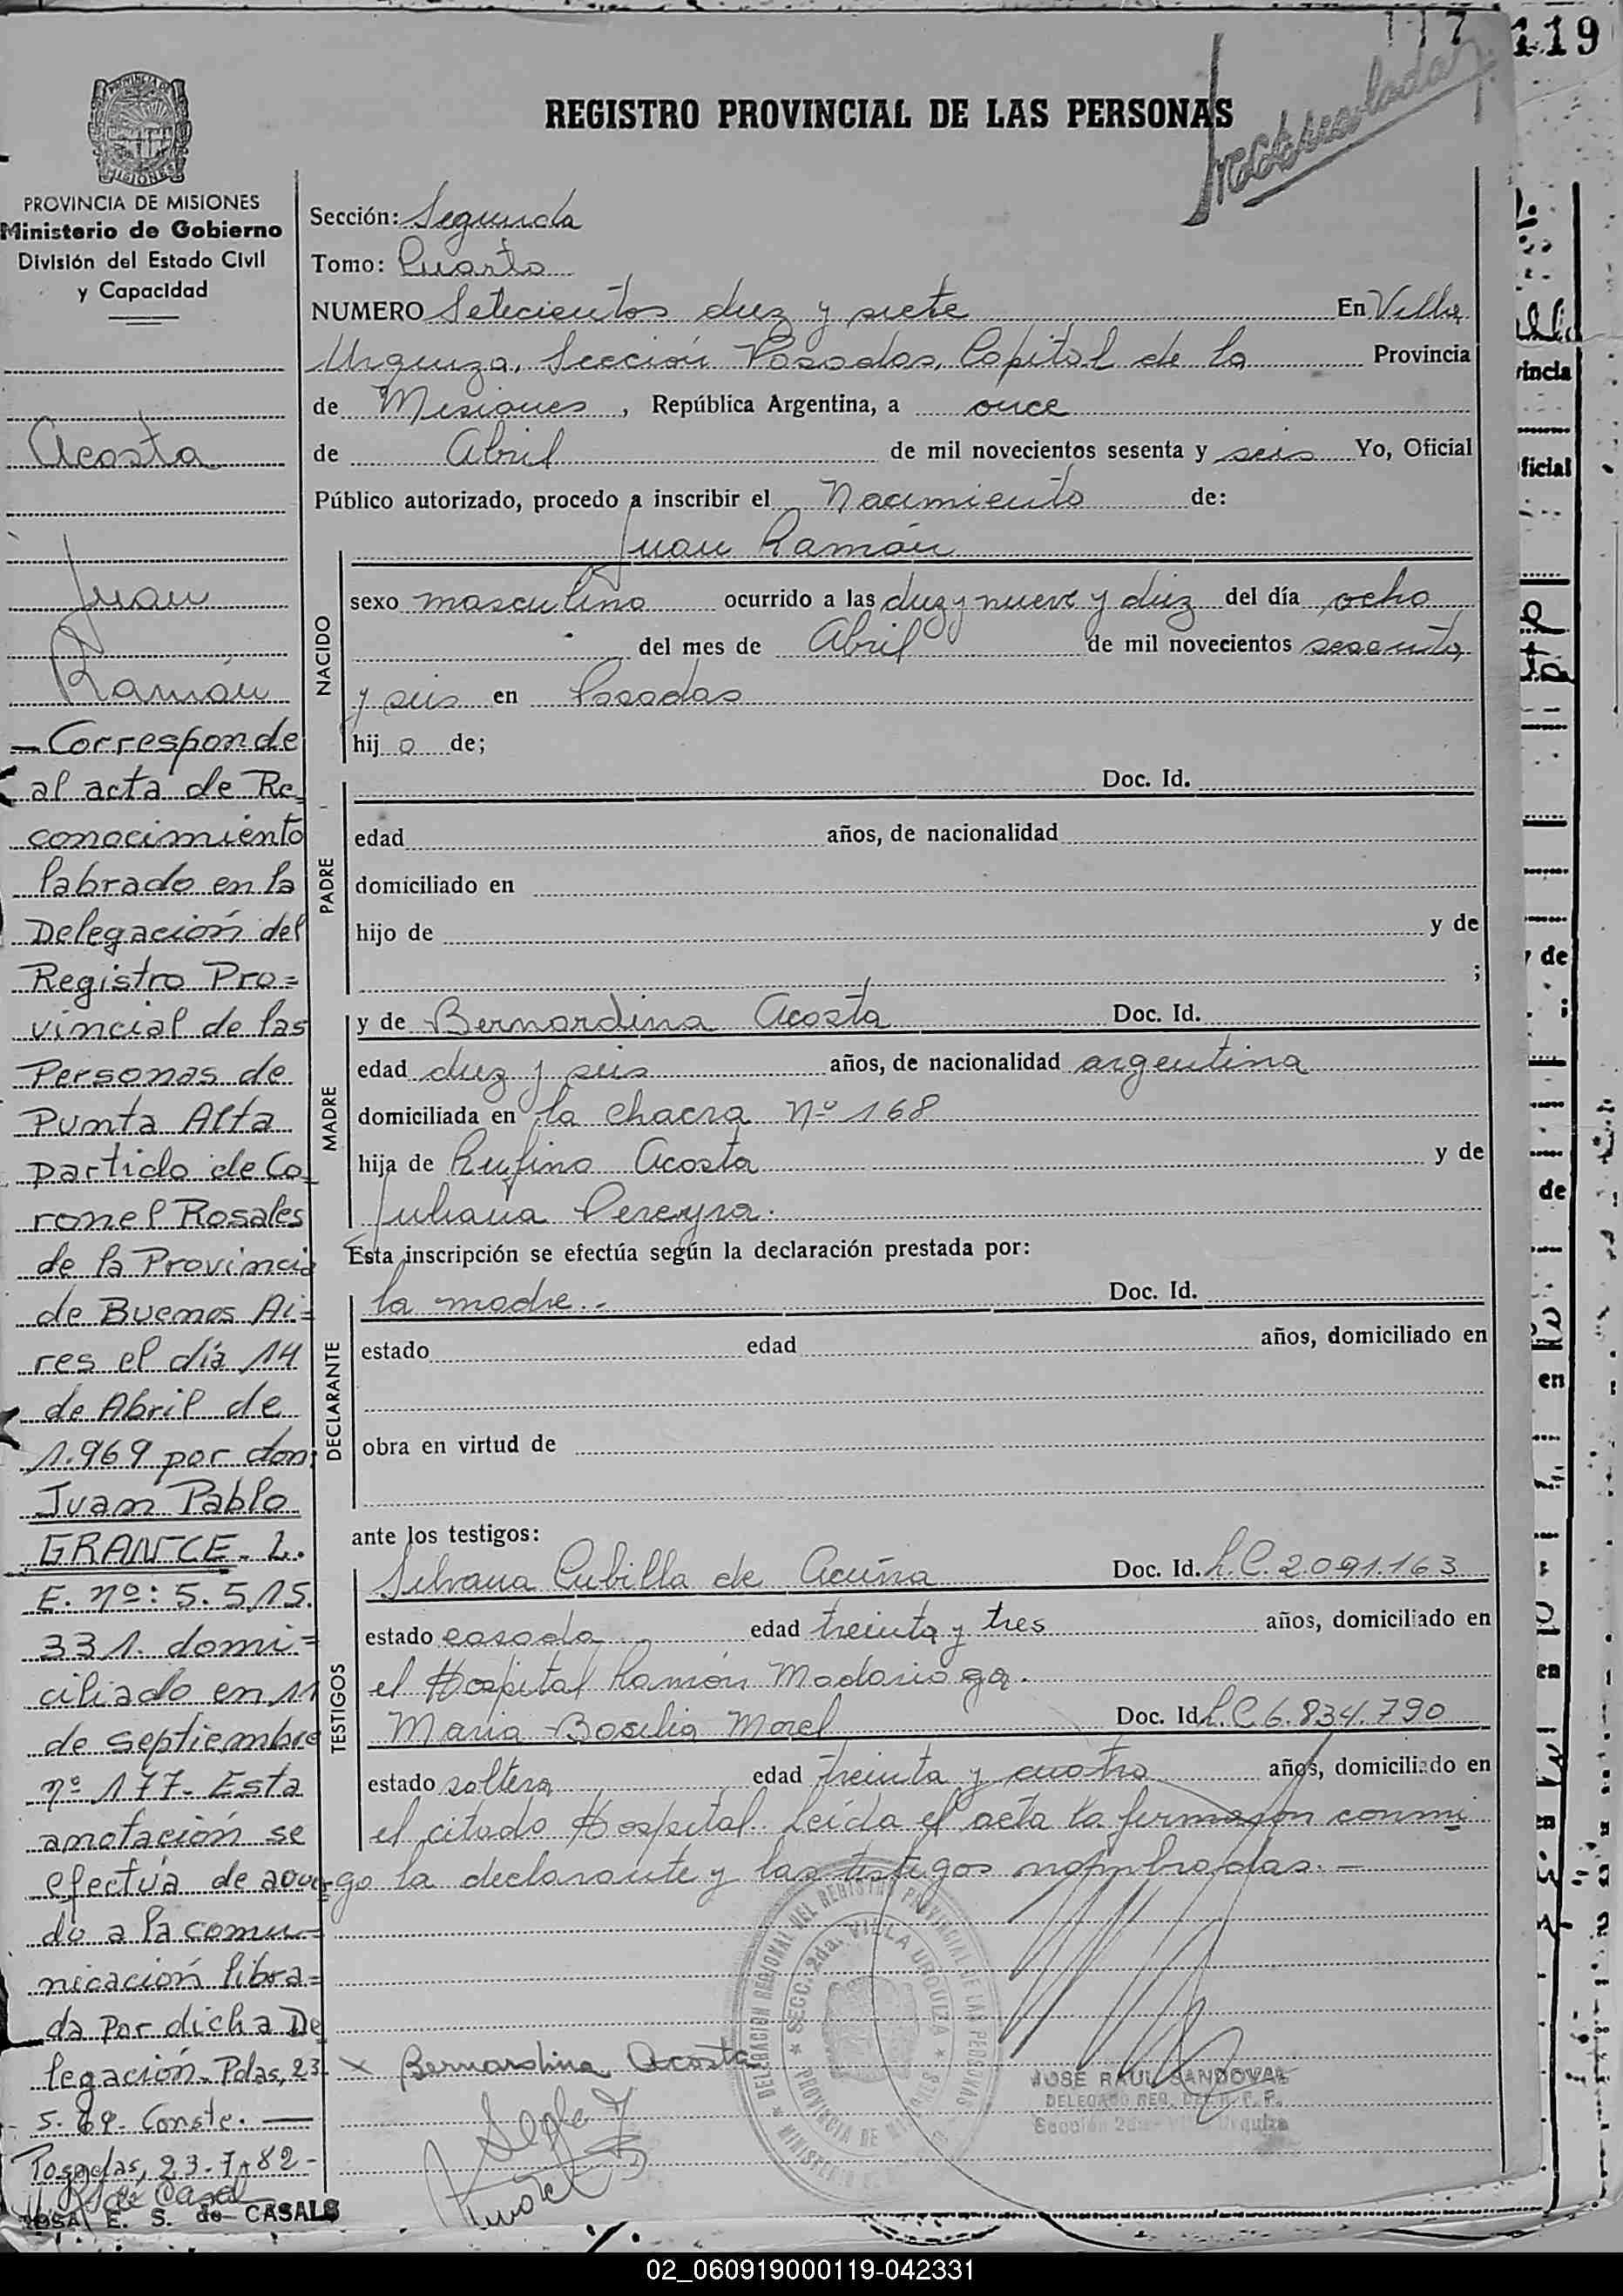 117
119
Inmaculada
REGISTRO PROVINCIAL DE LAS PERSONAS
PROVINCIA DE MISIONES
Ministerio de Gobierno
División del Estado Civil
y Capacidad
Sección: Segunda
Tomo: Cuarto
NUMERO Setecientos diez y siete En Villa
Urquiza, Sección Posadas, Capital de la Provincia
de Misiones, República Argentina, a once
de Abril de mil novecientos sesenta y seis Yo, Oficial
Público autorizado, procedo a inscribir el Nacimiento de:
Juan Ramón
NACIDO
sexo masculino ocurrido a las diez y nueve y diez del día ocho
del mes de Abril de mil novecientos sesenta
y seis en Posadas
hijo de;
PADRE
Doc. Id.
edad años, de nacionalidad
domiciliado en
hijo de y de
;
MADRE
y de Bernardina Acosta Doc. Id.
edad diez y seis años, de nacionalidad argentina
domiciliada en la chacra Nº 168
hija de Rufino Acosta y de
Juliana Pereyra.
Esta inscripción se efectúa según la declaración prestada por:
DECLARANTE
la madre.- Doc. Id.
estado edad años, domiciliado en
obra en virtud de
ante los testigos:
TESTIGOS
Silvana Cubilla de Acuña Doc. Id. L.C. 2.091.163
estado casada edad treinta y tres años, domiciliado en
el Hospital Ramón Madariaga.
Maria Basilia Morel Doc. Id L.C 6.834.790
estado soltera edad treinta y cuatro años, domiciliado en
el citado Hospital. Leída el acta la firmaron conmi
go la declarante y las testigos nombradas.-
Bernardina Acosta
DELEGACION REGIONAL DEL REGISTRO PROVINCIAL DE LAS PERSONAS
SECC. 2da. VILLA URQUIZA
PROVINCIA DE MISIONES
JOSE RAUL SANDOVAL
DELEGADO REG. DEL R. P. P.
Sección 2da - Villa Urquiza
Acosta
Juan
Ramón
- Corresponde
al acta de Re
conocimiento
labrado en la
Delegación del
Registro Pro=
vincial de las
Personas de
Punta Alta
partido de Co
ronel Rosales
de la Provincia
de Buenos Ai=
res el día 14
de Abril de
1.969 por don:
Juan Pablo
GRANCE. L.
E. nº: 5.515.
331. domi=
ciliado en 11
de septiembre
nº 177- Esta
anotación se
efectúa de acuer
do a la comu=
nicación libra=
da por dicha De
legación. Pdas, 23
5.69. Conste.
Posadas, 23-7-82-
ROSA E. S. de CASALS
02_060919000119-042331